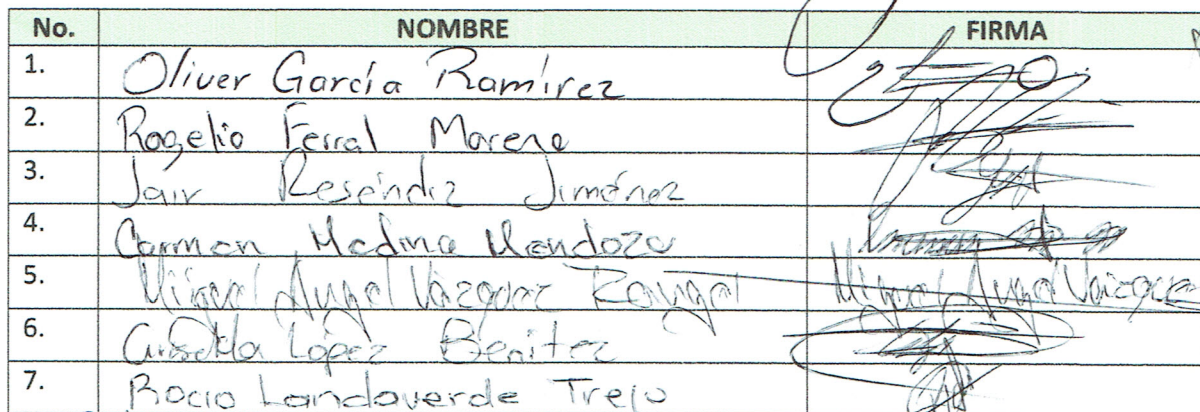 No. NOMBRE FIRMA
1. Oliver García Ramírez
2. Rogelio Ferral Moreno
3. Jair Reséndiz Jiménez
4. Carmen Medina Mendoza
5. Miguel Angel Vázquez Rangel Miguel Angel Vázquez
6. Griselda López Benítez
7. Rocio Landaverde Trejo